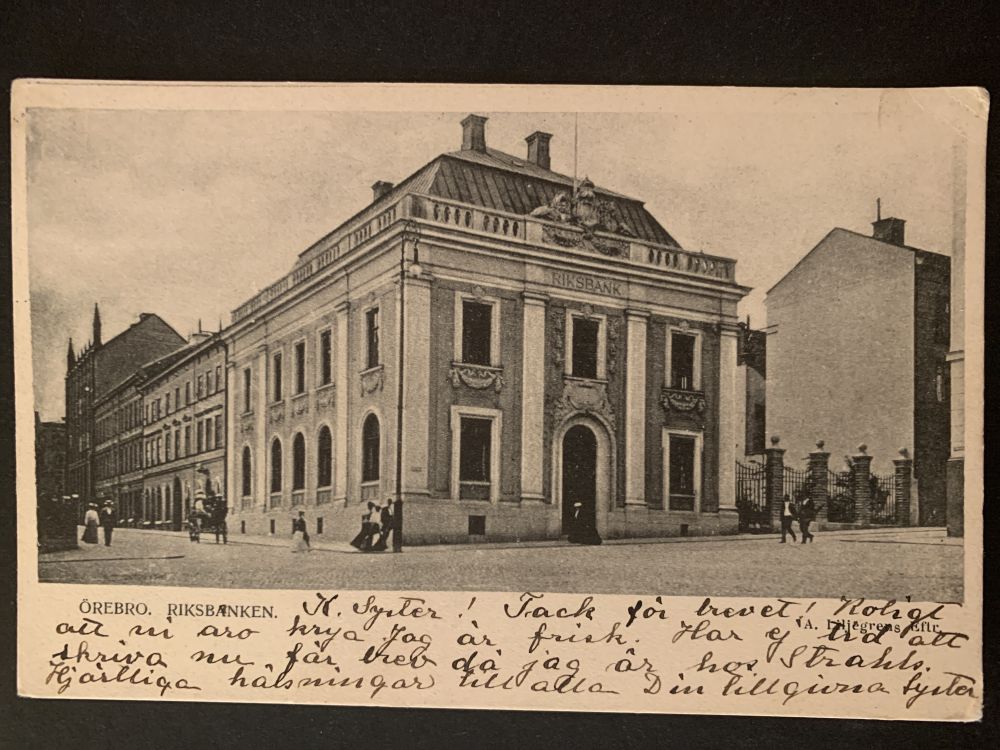 RIKSBANK
ÖREBRO. RIKSBANKEN. K. Syster! Tack för brevet! Roligt
A. Liljegrens Eftr.
att ni äro krya Jag är frisk. Har ej tid att
skriva nu får brev då jag är hos Strahls.
Hjärtliga hälsningar till alla Din tillgivna Syster